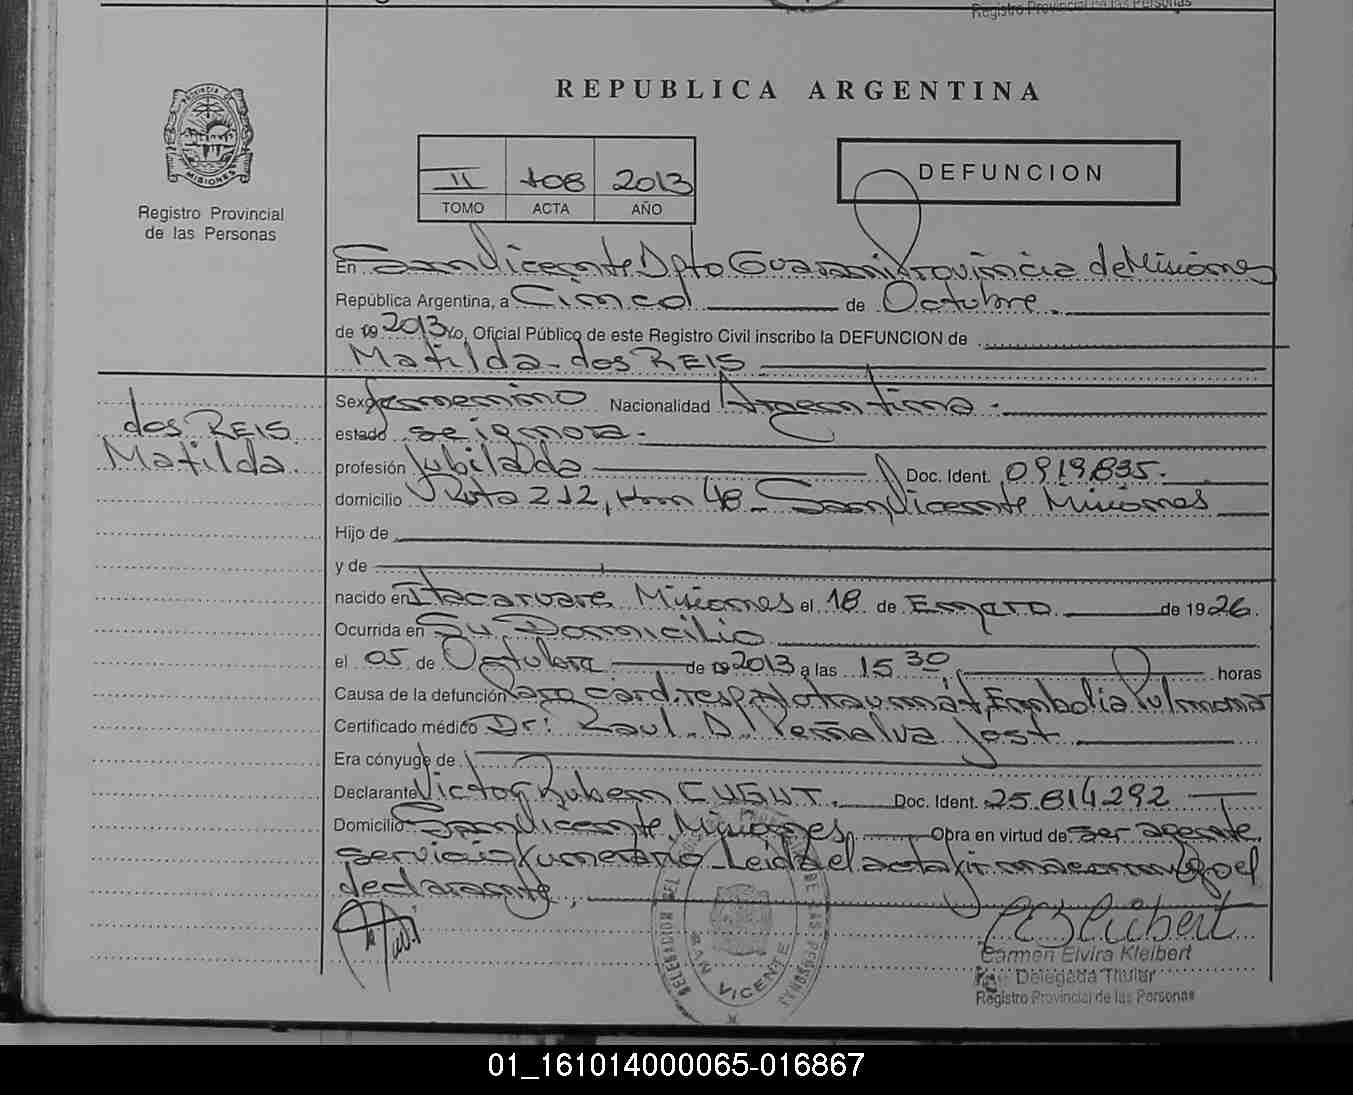 Registro Provincial de las Personas
REPUBLICA ARGENTINA
PROVINCIA DE
MISIONES
Registro Provincial
de las Personas
II 108 2013
TOMO ACTA AÑO
DEFUNCION
En San Vicente Dpto Guarani Provincia de Misiones
República Argentina, a Cinco de Octubre
de 19 2013 Yo, Oficial Público de este Registro Civil inscribo la DEFUNCION de
Matilda dos REIS
dos REIS
Matilda
Sexo femenino Nacionalidad Argentina.
estado se ignora.
profesión Jubilada Doc. Ident. 0919835.
domicilio Ruta 212, Km 48 San Vicente Misiones
Hijo de
y de
nacido en Itacaruare Misiones el 18 de Enero de 1926.
Ocurrida en Su Domicilio
el 05 de Octubre de 19 2013 a las 15 30 horas
Causa de la defunción Paro card. resp. No traumát, Embolia Pulmonar
Certificado médico Dr: Raul D. Peñalva Jost
Era cónyuge de
Declarante Victor Ruben Doc. Ident. 25.814.292
Domicilio San Vicente, Misiones, Obra en virtud de ser agente
servicio funerario Leida el acta firma conmigo el
declarante,
DELEGACION DEL DE LAS PERSONAS
SAN VICENTE
Carmen Elvira Kleibert
Delegada Titular
Registro Provincial de las Personas
01_161014000065-016867